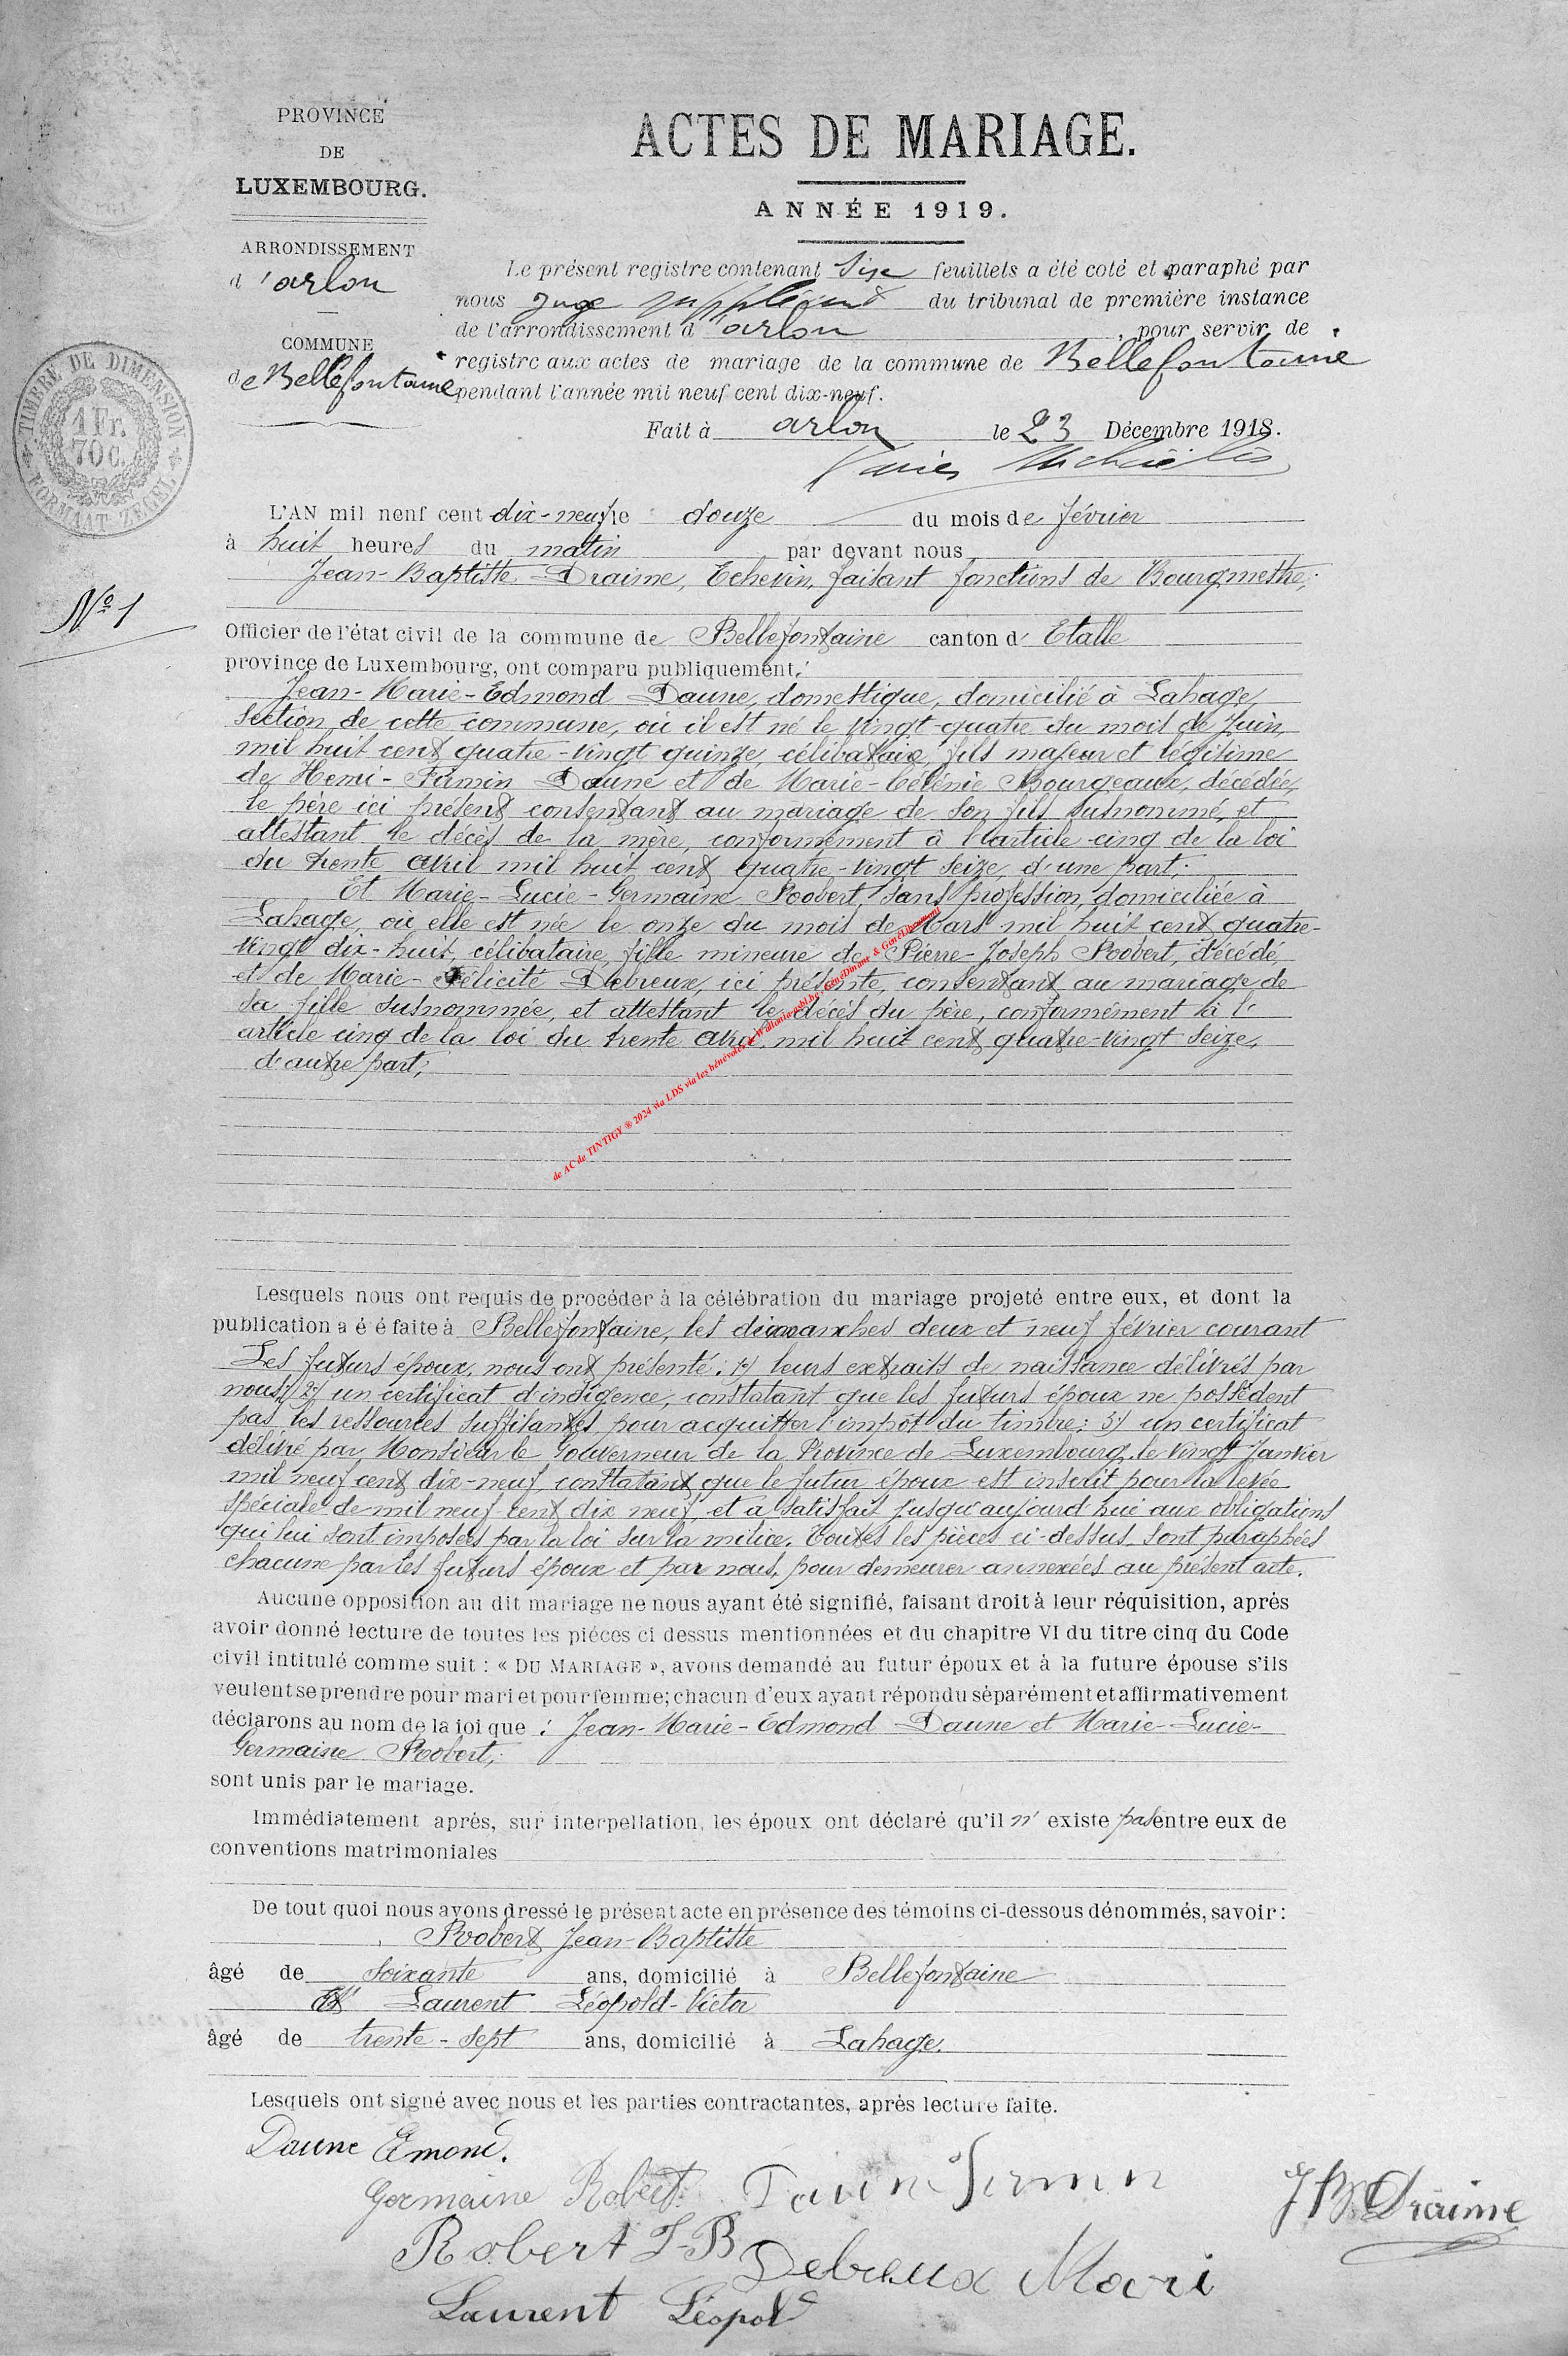 PROVINCE
DE
LUXEMBOURG.
ARRONDISSEMENT
d'arlon
COMMUNE
de Bellefontaine
TIMBRE DE DIMENSION
1 Fr.
70 C.
FORMAAT ZEGEL
ACTES DE MARIAGE.
ANNÉE 1919.
Le présent registre contenant Six feuillets a été coté et paraphé par
nous Juge suppléant du tribunal de première instance
de l'arrondissement d'arlon, pour servir de
registre aux actes de mariage de la commune de Bellefontaine
pendant l'année mil neuf cent dix-neuf.
Fait à arlon le 23 Décembre 1918.
N° 1
L'AN mil neuf cent dix-neuf le douze du mois de février
à huit heures du matin par devant nous
Jean-Baptiste Draime, Echevin, faisant fonctions de Bourgmestre,
Officier de l'état civil de la commune de Bellefontaine canton d'Etalle
province de Luxembourg, ont comparu publiquement:
Jean-Marie-Edmond Daune, domestique, domicilié à Lahage,
section de cette commune, où il est né le vingt-quatre du mois de Juin,
mil huit cent quatre-vingt quinze, célibataire, fils majeur et légitime
de Henri-Firmin Daune et de Marie-Célénie Bourgeaux, décédée,
le père ici présent consentant au mariage de son fils susnommé, et
attestant le décès de la mère, conformément à l'article cinq de la loi
du trente avril mil huit cent quatre-vingt seize, d'une part;
Et Marie-Lucie-Germaine Robert, sans profession, domiciliée à
Lahage, où elle est née le onze du mois de Mars mil huit cent quatre-
vingt dix-huit, célibataire, fille mineure de Pierre-Joseph Robert, décédé,
et de Marie-Félicité Debreux, ici présente, consentant au mariage de
sa fille susnommée, et attestant le décès du père, conformément à l'
article cinq de la loi du trente avril mil huit cent quatre-vingt seize,
d'autre part;
de AC de TINTIGY ® 2024 via LDS via les bénévoles de Wallonia-asbl.be, GénéDinant & GénéLibramont
Lesquels nous ont requis de procéder à la célébration du mariage projeté entre eux, et dont la
publication a é é faite à Bellefontaine, les dimanches deux et neuf février courant
Les futurs époux, nous ont présenté: 1°) leurs extraits de naissance délivrés par
nous; 2°) un certificat d'indigence, constatant que les futurs époux ne possèdent
pas les ressources suffisantes pour acquitter l'impôt du timbre; 3°) un certificat
délivré par Monsieur le Gouverneur de la Province de Luxembourg, le vingt Janvier
mil neuf cent dix-neuf, constatant que le futur époux est inscrit pour la levée
spéciale de mil neuf cent dix neuf, et a satisfait jusqu'aujourd'hui aux obligations
qui lui sont imposées par la loi sur la milice. Toutes les pièces ci-dessus sont paraphées
chacune par les futurs époux et par nous, pour demeurer annexées au présent acte.
Aucune opposition au dit mariage ne nous ayant été signifié, faisant droit à leur réquisition, après
avoir donné lecture de toutes les pièces ci dessus mentionnées et du chapitre VI du titre cinq du Code
civil intitulé comme suit : « DU MARIAGE », avons demandé au futur époux et à la future épouse s'ils
veulent se prendre pour mari et pour femme; chacun d'eux ayant répondu séparément et affirmativement
déclarons au nom de la loi que : Jean-Marie-Edmond Daune et Marie-Lucie-
Germaine Robert,
sont unis par le mariage.
Immédiatement après, sur interpellation, les époux ont déclaré qu'il n'existe pas entre eux de
conventions matrimoniales
De tout quoi nous avons dressé le présent acte en présence des témoins ci-dessous dénommés, savoir :
Robert Jean-Baptiste
âgé de soixante ans, domicilié à Bellefontaine
Et Laurent Léopold-Victor
âgé de trente-sept ans, domicilié à Lahage.
Lesquels ont signé avec nous et les parties contractantes, après lecture faite.
Daune Emond.
Germaine Robert. Daune Firmin
J B. Draime
Robert J-B Debreux Mari
Laurent Léopold